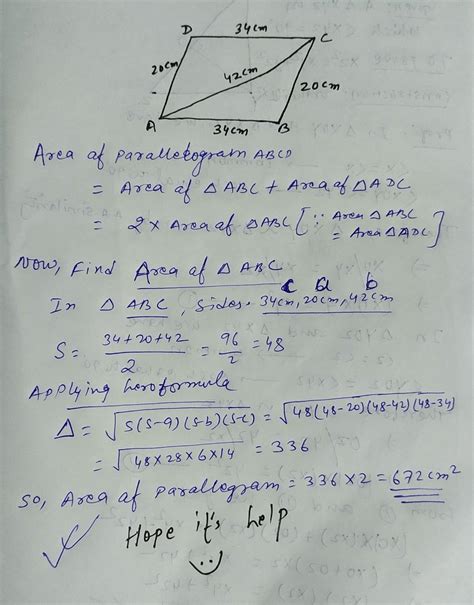 D 34cm C
20cm 42cm 20cm
A 34cm B
Area of parallelogram ABCD
= Area of △ABC + Area of △ADC
= 2 × Area of △ABC [∵ Area △ABC = Area △ADC]
c a b
Now, find Area of △ABC
In △ ABC, sides = 34cm, 20cm, 42cm
S = 34+20+42/2 = 96/2 = 48
Applying heroformula
△ = √S(S-a)(S-b)(S-c) = √48(48-20)(48-42)(48-34)
= √48×28×6×14 = 336
So, Area of parallogram = 336×2 = 672cm²
Hope it's help